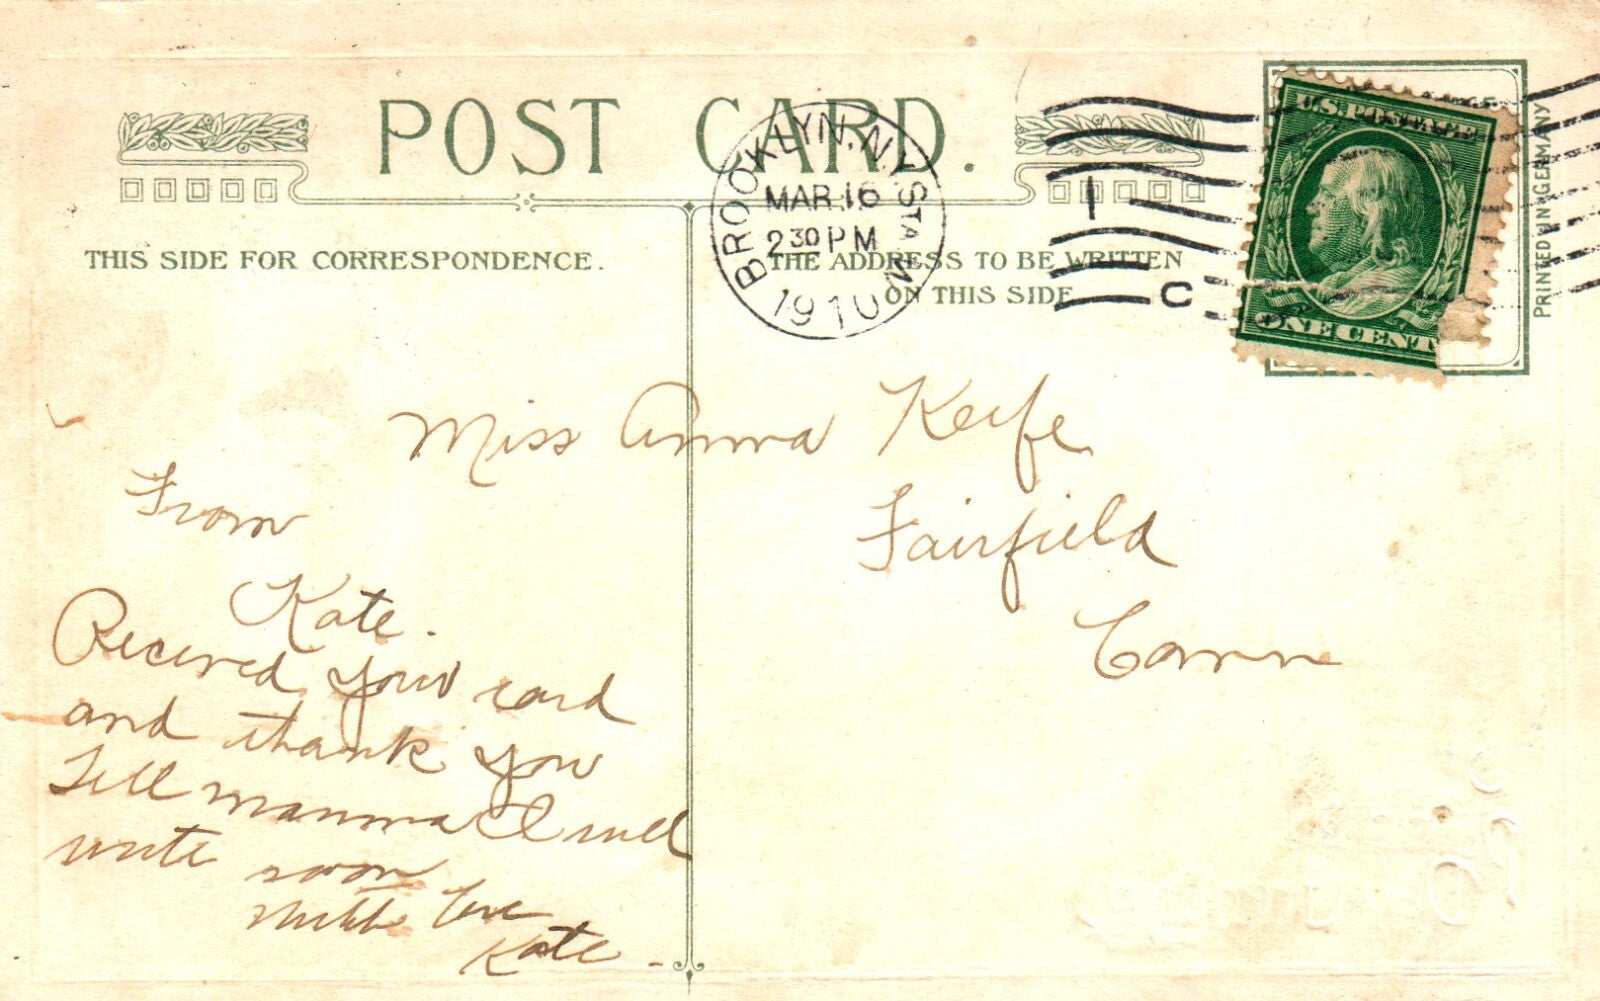 POST CARD.
THIS SIDE FOR CORRESPONDENCE.
THE ADDRESS TO BE WRITTEN
ON THIS SIDE
BROOKLYN, N.Y. STA. W
MAR 16
2 30 PM
1910
1
C
U.S. POSTAGE
ONE CENT
PRINTED IN GERMANY
Miss Anna Keefe
Fairfield
Conn
From
Kate.
Received your card
and thank you
Tell mamma I will
write soon
love
Kate